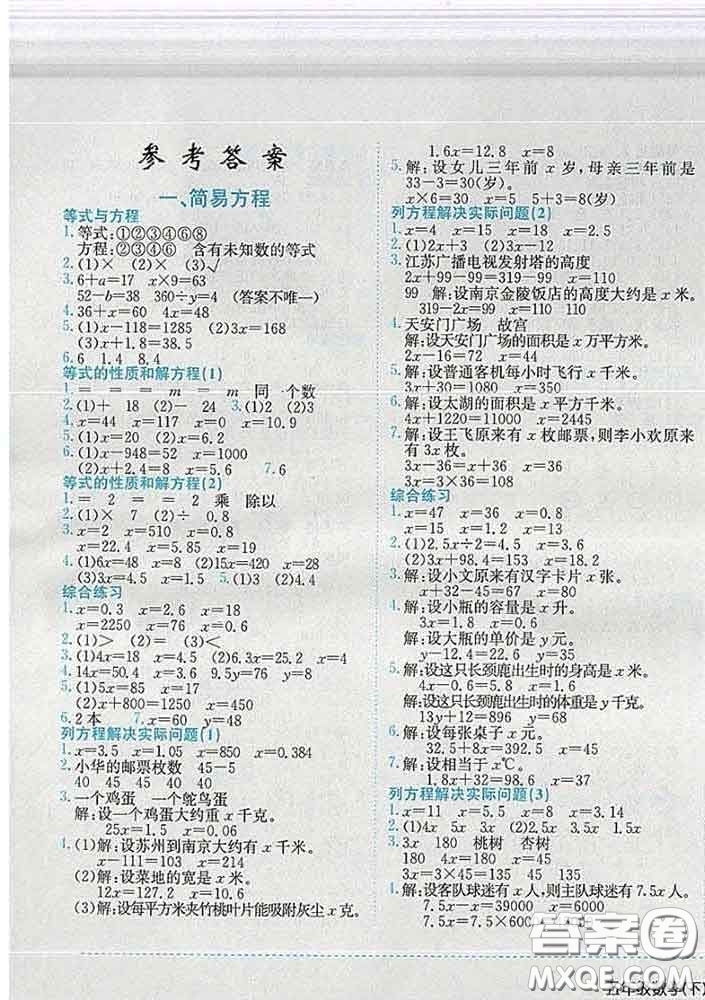 参考答案
一、简易方程
等式与方程
1. 等式:①②③④⑥⑧
方程:②③④⑥ 含有未知数的等式
2. (1)× (2)× (3)√
3. 6+a=17 x×9=63
52-b=38 360÷y=4 (答案不唯一)
4. 36+x=60 4x=48
5. (1)x-118=1285 (2)3x=168
(3)x+1.8=38.5
6. 6 1.4 8.4
等式的性质和解方程(1)
1. = = = m = m 同一个数
2. (1)+ 18 (2)- 24 3. (1)2 (2)3
4. x=44 x=117 x=0 x=10
5. (1)x=20 (2)x=6.2
6. (1)x-948=52 x=1000
(2)x+2.4=8 x=5.6 7. 6
等式的性质和解方程(2)
1. = 2 = = 2 = 乘 除以
2. (1)× 7 (2)÷ 0.8
3. x=2 x=510 x=0.8
x=22.4 x=85 x=15
4. (1)6x=48 x=8 (2)15x=420 x=28
(3)3x=4.5 x=1.5 5. (1)3 (2)4.4
综合练习
1. x=0.3 x=2.6 x=18
x=2250 x=76 x=0.6
2. (1)> (2)= (3)<
3. (1)4x=18 x=4.5 (2)6.3x=25.2 x=4
4. 14x=50.4 x=3.6 9.5y=76 y=8
5. (1)x=50
(2)x+800=1250 x=450
6. 2本 7. x=60 y=48
列方程解决实际问题(1)
1. x=3.5 x=1.05 x=850 x=0.384
2. 小华的邮票枚数 45-5
40 45 40 5 40
3. 一个鸡蛋 一个鸵鸟蛋
解:设一个鸡蛋大约重x千克。
25x=1.5 x=0.06
4. (1)解:设苏州到南京大约有x千米。
x-111=103 x=214
(2)解:设菜地的宽是x米。
12x=127.2 x=10.6
(3)解:设每平方米夹竹桃叶片能吸附灰尘x克。
1.6x=12.8 x=8
5. 解:设女儿三年前x岁,母亲三年前是
33-3=30(岁)。
x×6=30 x=5 5+3=8(岁)
列方程解决实际问题(2)
1. x=4 x=15 x=18 x=2.5
2. (1)2x+3 (2)3x-12
3. 江苏广播电视发射塔的高度
2x+99=319-99 110 110
99 解:设南京金陵饭店的高度大约是x米。
319-2x=99 x=110
4. 天安门广场 故宫
解:设天安门广场的面积是x万平方米。
2x-16=72 x=44
5. 解:设普通客机每小时飞行x千米。
3x+30=1080 x=350
6. 解:设太湖的面积是x平方千米。
4x+1220=11000
7. 解:设王飞原来有x枚邮票,则李小欢原来
有3x枚。
3x-36=x+36 x=36
3x=3×36=108
综合练习
1. x=47 x=36 x=0.9
x=15 x=13 x=1.2
2. (1)2.5x÷2=4.5 x=3.6
(2)3x+43.4=98 x=18.2
3. 解:设小文原来有汉字卡片x张。
x+32-45=67 x=80
4. 解:设小瓶的容量是x升。
3x=1.8 x=0.6
解:设大瓶的单价是y元。
5. 解:设这只长颈鹿出生时的身高是x米。
解:设这只长颈鹿出生时的体重是y千克。
13y+12=896 y=68
6. 解:设每张桌子x元。
7. 解:设相当于x℃。
1.8x+32=98.6 x=37
列方程解决实际问题(3)
1. x=11 x=5.5 x=8 x=3.14
3. 3x 180 桃树 杏树
180 4x=180 x=45 135
3x=3×45=135
4. 解:设客队球迷有x人,则主队球迷有7.5x人。
7.5x-x=39000 x=6000
答案圈
MXQE.COM
五年级数学(下)